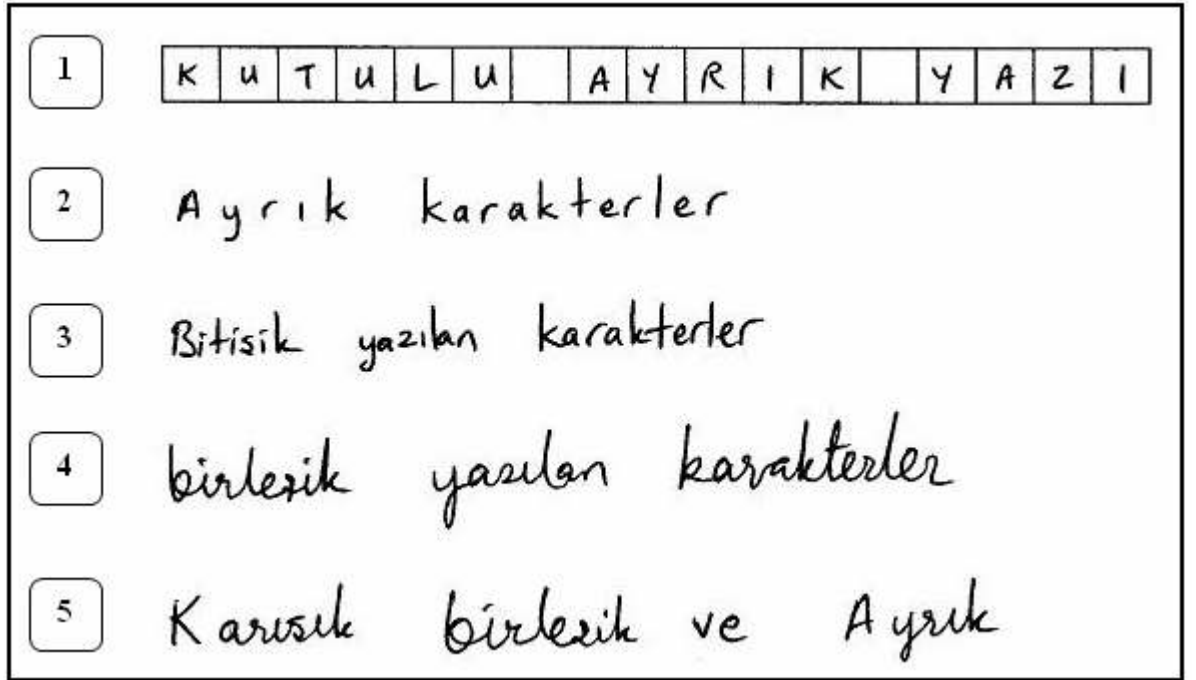 1 KUTULU AYRIK YAZI
2 Ayrık karakterler
3 Bitisik yazılan karakterler
4 birlesik yazılan karakterler
5 Karısık birlesik ve Ayrık